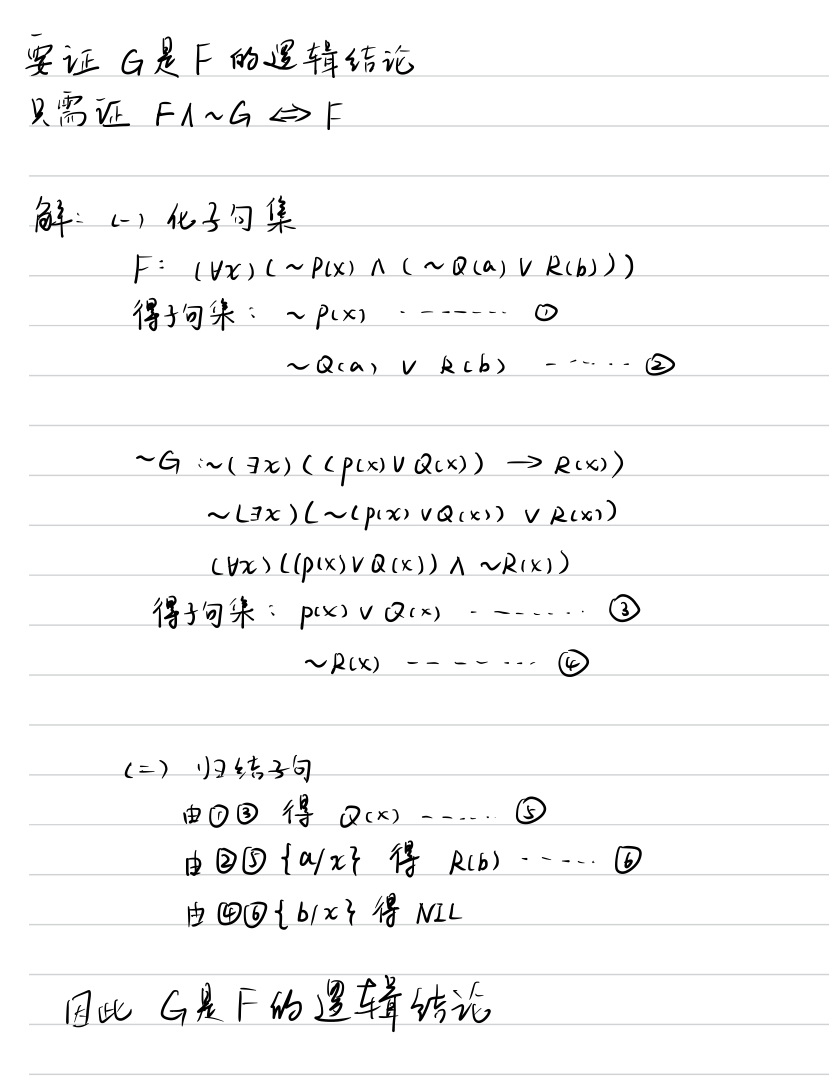 要证 G是F的逻辑结论
只需证 F∧~G ⇔ F
解: (一) 化子句集
F: (∀x)(~P(x) ∧ (~Q(a) ∨ R(b)))
得子句集: ~P(x) ------- ①
~Q(a) ∨ R(b) ------ ②
~G :~(∃x)((P(x)∨Q(x)) → R(x))
~(∃x)(~(P(x)∨Q(x)) ∨ R(x))
(∀x)((P(x)∨Q(x)) ∧ ~R(x))
得子句集: P(x)∨Q(x) -------- ③
~R(x) -------- ④
(二) 归结子句
由①③ 得 Q(x) ------ ⑤
由②⑤{a/x} 得 R(b) ------ ⑥
由④⑥{b/x} 得 NIL
因此 G是F的逻辑结论